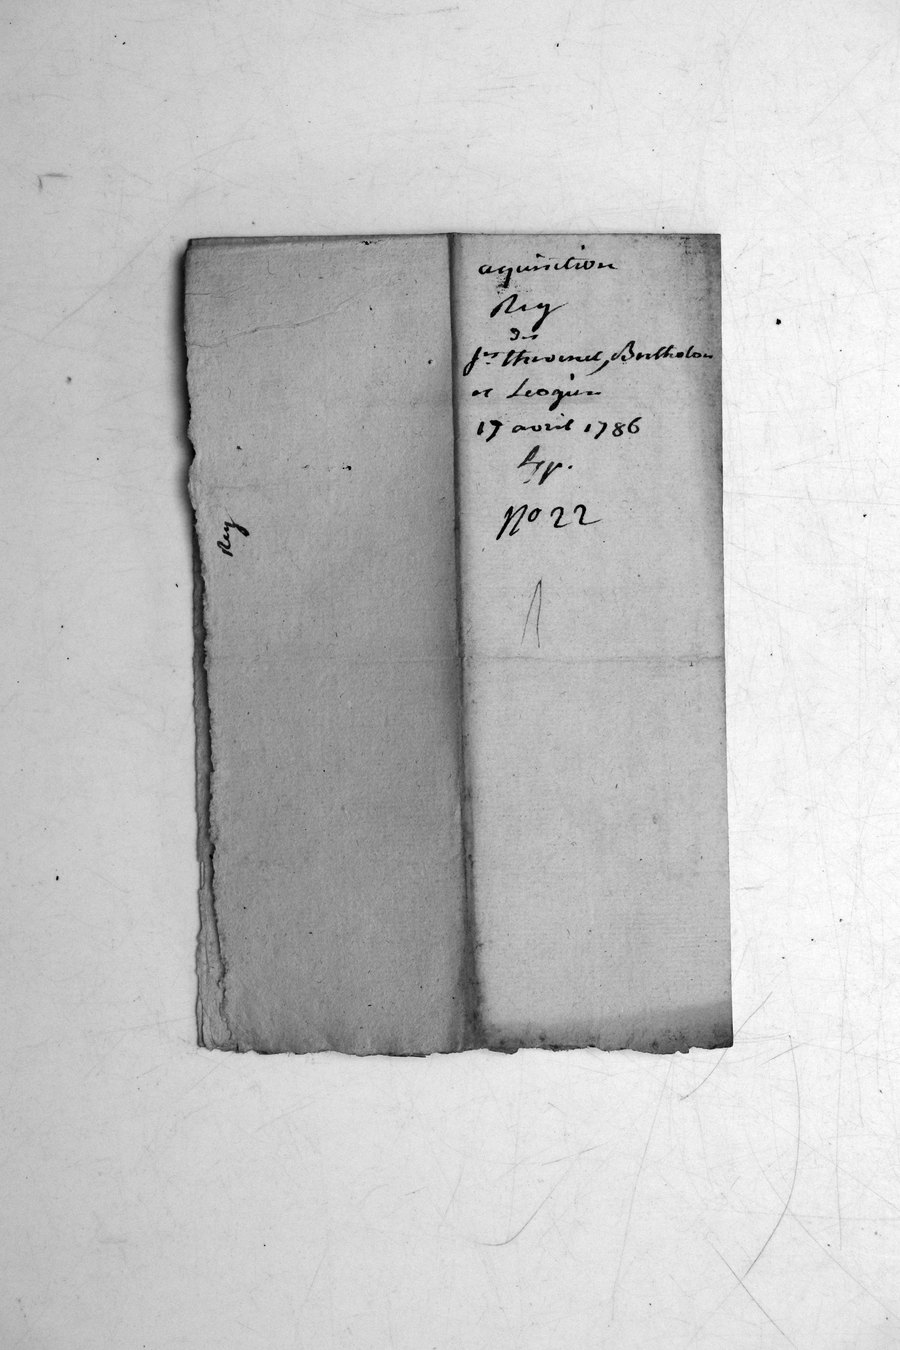 Rey
aquisition
Rey
des
Srs thevenet, Bertholon
et Leogier
17 avril 1786
No 22